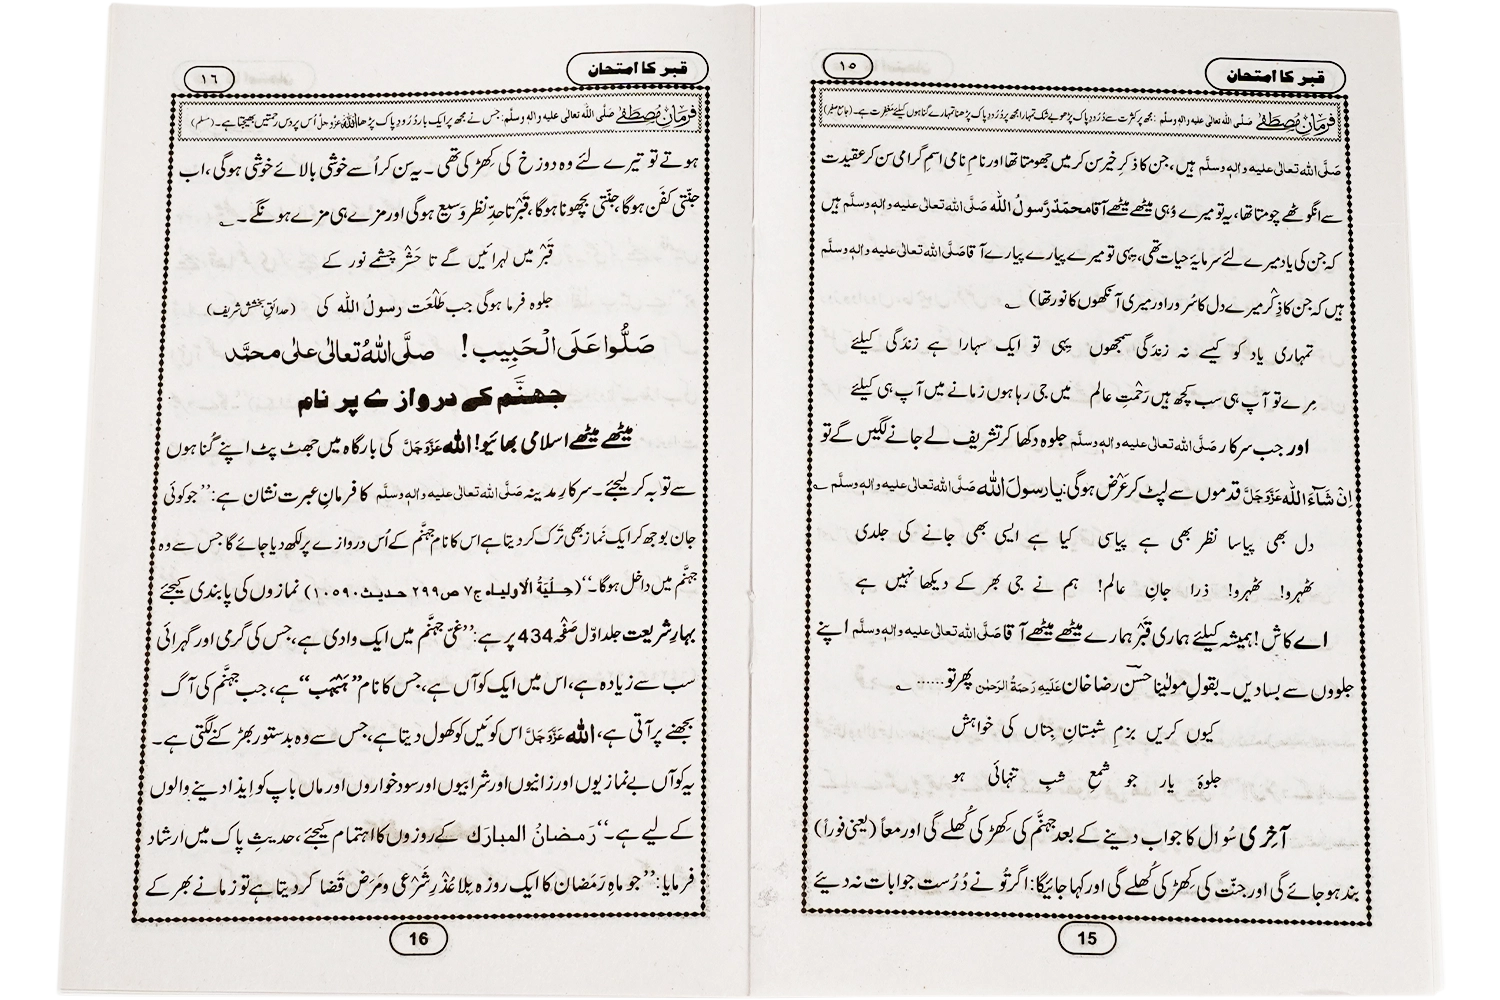 قبر کا امتحان
١٥
فرمانِ مُصطَفٰے صَلَّی اللہ تعالیٰ علیہ واٰلہٖ وسلَّم : مجھ پر کثرت سے دُرُود پاک پڑھو بے شک تمہارا مجھ پر دُرُود پاک پڑھنا تمہارے گناہوں کیلئے مغفرت ہے۔ (جامع صغیر)
صَلَّی اللہ تعالیٰ علیہ واٰلہٖ وسلَّم ہیں، جن کا ذکرِ خیر سن کر میں جھومتا تھا اور نامِ نامی اسمِ گرامی سن کر عقیدت
سے انگوٹھے چومتا تھا، یہ تو میرے وُہی میٹھے میٹھے آقا محمدٌ رَّسولُ اللہ صَلَّی اللہ تعالیٰ علیہ واٰلہٖ وسلَّم ہیں
کہ جن کی یاد میرے لئے سرمایۂ حیات تھی، یہی تو میرے پیارے پیارے آقا صَلَّی اللہ تعالیٰ علیہ واٰلہٖ وسلَّم
ہیں کہ جن کا ذِکْر میرے دل کا سُرور اور میری آنکھوں کا نور تھا) ؎
تمہاری یاد کو کیسے نہ زندَگی سمجھوں یِہی تو ایک سہارا ہے زندَگی کیلئے
مِرے تو آپ ہی سب کچھ ہیں رَحْمتِ عالم میں جی رہا ہوں زمانے میں آپ ہی کیلئے
اور جب سرکار صَلَّی اللہ تعالیٰ علیہ واٰلہٖ وسلَّم جلوہ دکھا کر تشریف لے جانے لگیں گے تو
اِنْ شَآءَ اللہ عَزَّوَجَلَّ قدموں سے لپٹ کر عَرْض ہوگی: یا رسولَ اللہ صَلَّی اللہ تعالیٰ علیہ واٰلہٖ وسلَّم ؎
دل بھی پیاسا نظر بھی ہے پیاسی کیا ہے ایسی بھی جانے کی جلدی
ٹھہرو! ٹھہرو! ذرا جانِ عالم! ہم نے جی بھر کے دیکھا نہیں ہے
اے کاش! ہمیشہ کیلئے ہماری قَبْر ہمارے میٹھے میٹھے آقا صَلَّی اللہ تعالیٰ علیہ واٰلہٖ وسلَّم اپنے
جلووں سے بسا دیں۔ بقولِ مولیٰنا حسنؔ رضا خان عَلَیہِ رَحمَۃُ الرَّحمٰن پھر تو...... ؎
کیوں کریں بزمِ شبستانِ جِناں کی خواہش
جلوۂ یار جو شمعِ شبِ تنہائی ہو
آخِری سُوال کا جواب دینے کے بعد جہنَّم کی کِھڑکی کُھلے گی اور معاً (یعنی فوراً)
بند ہو جائے گی اور جنّت کی کِھڑکی کُھلے گی اور کہا جائیگا: اگر تُو نے دُرُست جوابات نہ دیئے
15
قبر کا امتحان
١٦
فرمانِ مُصطَفٰے صَلَّی اللہ تعالیٰ علیہ واٰلہٖ وسلَّم : جس نے مجھ پر ایک بار دُرُود پاک پڑھا اللہ عَزَّوَجَلَّ اُس پر دس رحمتیں بھیجتا ہے۔ (مسلم)
ہوتے تو تیرے لئے وہ دوزخ کی کِھڑکی تھی۔ یہ سن کر اُسے خوشی بالائے خوشی ہوگی، اب
جنّتی کفَن ہوگا، جنّتی بچھونا ہوگا، قَبْر تا حدِّ نظر وَسیع ہوگی اور مزے ہی مزے ہونگے۔ ؎
قَبْر میں لہرائیں گے تا حَشْر چشمے نور کے
جلوہ فرما ہوگی جب طَلْعَت رسولُ اللہ کی (حدائقِ بخشش شریف)
صَلُّوا عَلَی الْحَبِیب! صلَّی اللّٰہُ تعالیٰ علیٰ محمَّد
جہنَّم کے دروازے پر نام
میٹھے میٹھے اسلامی بھائیو! اللہ عَزَّوَجَلَّ کی بارگاہ میں جھٹ پٹ اپنے گُناہوں
سے توبہ کر لیجئے۔ سرکارِ مدینہ صَلَّی اللہ تعالیٰ علیہ واٰلہٖ وسلَّم کا فرمانِ عبرت نشان ہے: ’’جو کوئی
جان بوجھ کر ایک نَماز بھی تَرْک کر دیتا ہے اس کا نام جہنَّم کے اُس دروازے پر لکھ دیا جائے گا جس سے وہ
جہنَّم میں داخل ہوگا۔‘‘ (حِلیَۃُ الاولیاء ج٧ ص٢٩٩ حدیث١٠٥٩٠) نمازوں کی پابندی کیجئے
بہارِ شریعت جلد اوّل صَفْحہ 434 پر ہے: ’’غَیّ جہنَّم میں ایک وادی ہے، جس کی گرمی اور گہرائی
سب سے زیادہ ہے، اس میں ایک کوآں ہے، جس کا نام ’’ہَبْہَب‘‘ ہے، جب جہنَّم کی آگ
بجھنے پر آتی ہے، اللہ عَزَّوَجَلَّ اس کوئیں کو کھول دیتا ہے، جس سے وہ بدستور بھڑکنے لگتی ہے۔
یہ کوآں بے نمازیوں اور زانیوں اور شرابیوں اور سود خواروں اور ماں باپ کو ایذا دینے والوں
کے لیے ہے۔‘‘ رَمضانُ المبارَک کے روزوں کا اہتمام کیجئے، حدیثِ پاک میں ارشاد
فرمایا: ’’جو ماہِ رَمَضان کا ایک روزہ بِلا عُذْرِ شَرْعی و مَرَض قَضا کر دیتا ہے تو زمانے بھر کے
16